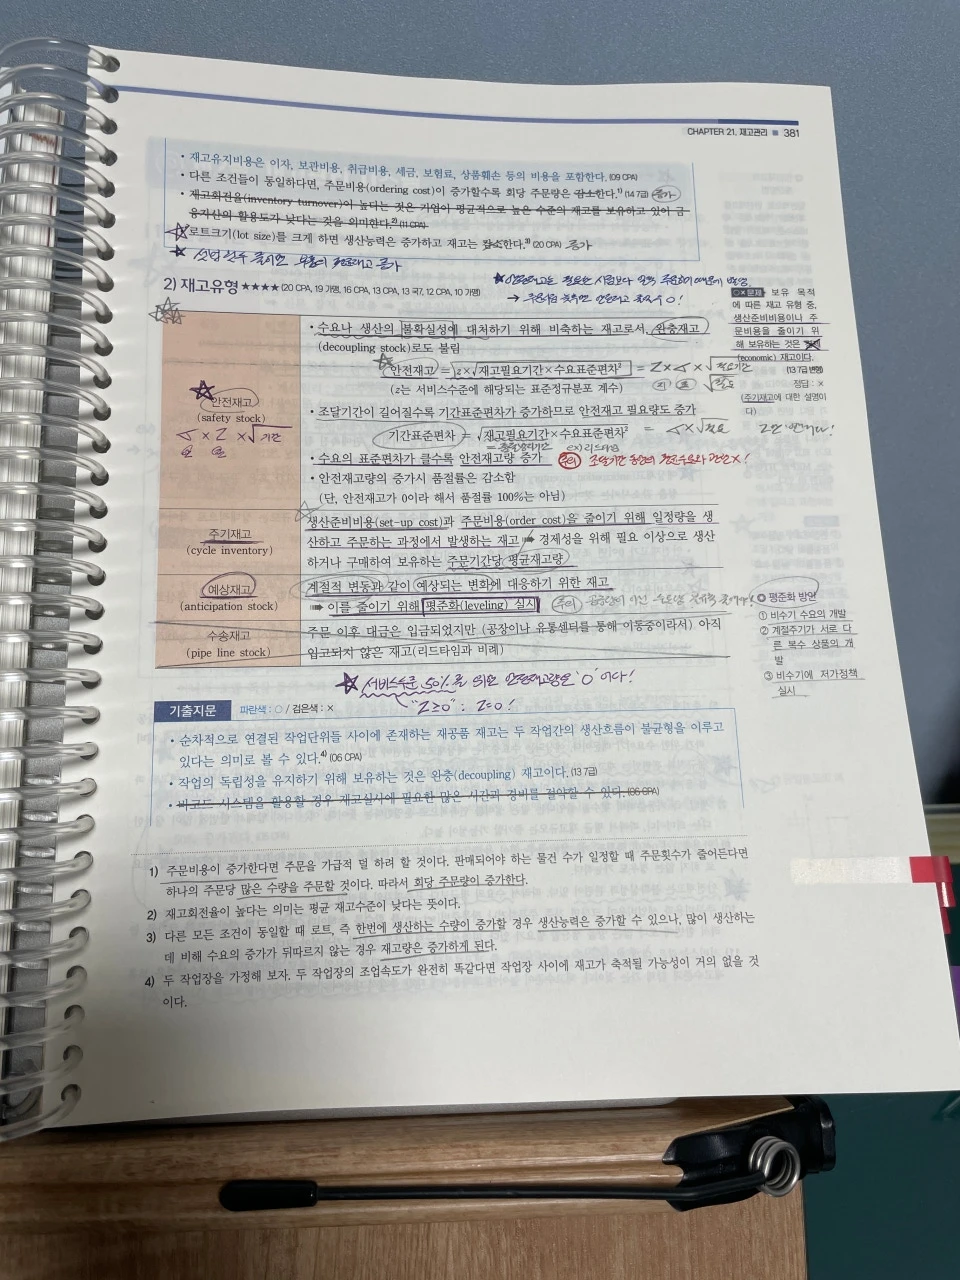 CHAPTER 21. 재고관리 ■ 381
• 재고유지비용은 이자, 보관비용, 취급비용, 세금, 보험료, 상품훼손 등의 비용을 포함한다. (09 CPA)
• 다른 조건들이 동일하다면, 주문비용(ordering cost)이 증가할수록 회당 주문량은 감소한다.1) (14 7급) 증가
• 재고회전율(inventory turnover)이 높다는 것은 기업이 평균적으로 높은 수준의 재고를 보유하고 있어 금
융자산의 활용도가 낮다는 것을 의미한다.2) (11 CPA)
로트크기(lot size)를 크게 하면 생산능력은 증가하고 재고는 감소한다.3) (20 CPA) 증가
2) 재고유형 ★★★★ (20 CPA, 19 가맹, 16 CPA, 13 CPA, 13 국7, 12 CPA, 10 가맹)
안전재고
(safety stock)
• 수요나 생산의 불확실성에 대처하기 위해 비축하는 재고로서, 완충재고
(decoupling stock)로도 불림
안전재고 = z×√재고필요기간×수요표준편차²
(z는 서비스수준에 해당되는 표준정규분포 계수)
• 조달기간이 길어질수록 기간표준편차가 증가하므로 안전재고 필요량도 증가
기간표준편차 = √재고필요기간×수요표준편차²
• 수요의 표준편차가 클수록 안전재고량 증가
• 안전재고량의 증가시 품절률은 감소함
(단, 안전재고가 0이라 해서 품절률 100%는 아님)
주기재고
(cycle inventory)
생산준비비용(set-up cost)과 주문비용(order cost)을 줄이기 위해 일정량을 생
산하고 주문하는 과정에서 발생하는 재고 ➠ 경제성을 위해 필요 이상으로 생산
하거나 구매하여 보유하는 주문기간당 평균재고량
예상재고
(anticipation stock)
계절적 변동과 같이 예상되는 변화에 대응하기 위한 재고
➠ 이를 줄이기 위해 평준화(leveling) 실시
수송재고
(pipe line stock)
주문 이후 대금은 입금되었지만 (공장이나 유통센터를 통해 이동중이라서) 아직
입고되지 않은 재고(리드타임과 비례)
○×문제 보유 목적
에 따른 재고 유형 중,
생산준비비용이나 주
문비용을 줄이기 위
해 보유하는 것은
(economic) 재고이다.
(13 7급 변형)
정답 : ×
(주기재고에 대한 설명이
다)
평준화 방안
① 비수기 수요의 개발
② 계절주기가 서로 다
른 복수 상품의 개
발
③ 비수기에 저가정책
실시
★ 서비스수준 50%를 위한 안전재고량은 '0'이다!
기출지문 파란색 : ○ / 검은색 : ×
• 순차적으로 연결된 작업단위들 사이에 존재하는 재공품 재고는 두 작업간의 생산흐름이 불균형을 이루고
있다는 의미로 볼 수 있다.4) (06 CPA)
• 작업의 독립성을 유지하기 위해 보유하는 것은 완충(decoupling) 재고이다. (13 7급)
• 바코드 시스템을 활용할 경우 재고실사에 필요한 많은 시간과 경비를 절약할 수 있다. (06 CPA)
1) 주문비용이 증가한다면 주문을 가급적 덜 하려 할 것이다. 판매되어야 하는 물건 수가 일정할 때 주문횟수가 줄어든다면
하나의 주문당 많은 수량을 주문할 것이다. 따라서 회당 주문량이 증가한다.
2) 재고회전율이 높다는 의미는 평균 재고수준이 낮다는 뜻이다.
3) 다른 모든 조건이 동일할 때 로트, 즉 한번에 생산하는 수량이 증가할 경우 생산능력은 증가할 수 있으나, 많이 생산하는
데 비해 수요의 증가가 뒤따르지 않는 경우 재고량은 증가하게 된다.
4) 두 작업장을 가정해 보자. 두 작업장의 조업속도가 완전히 똑같다면 작업장 사이에 재고가 축적될 가능성이 거의 없을 것
이다.